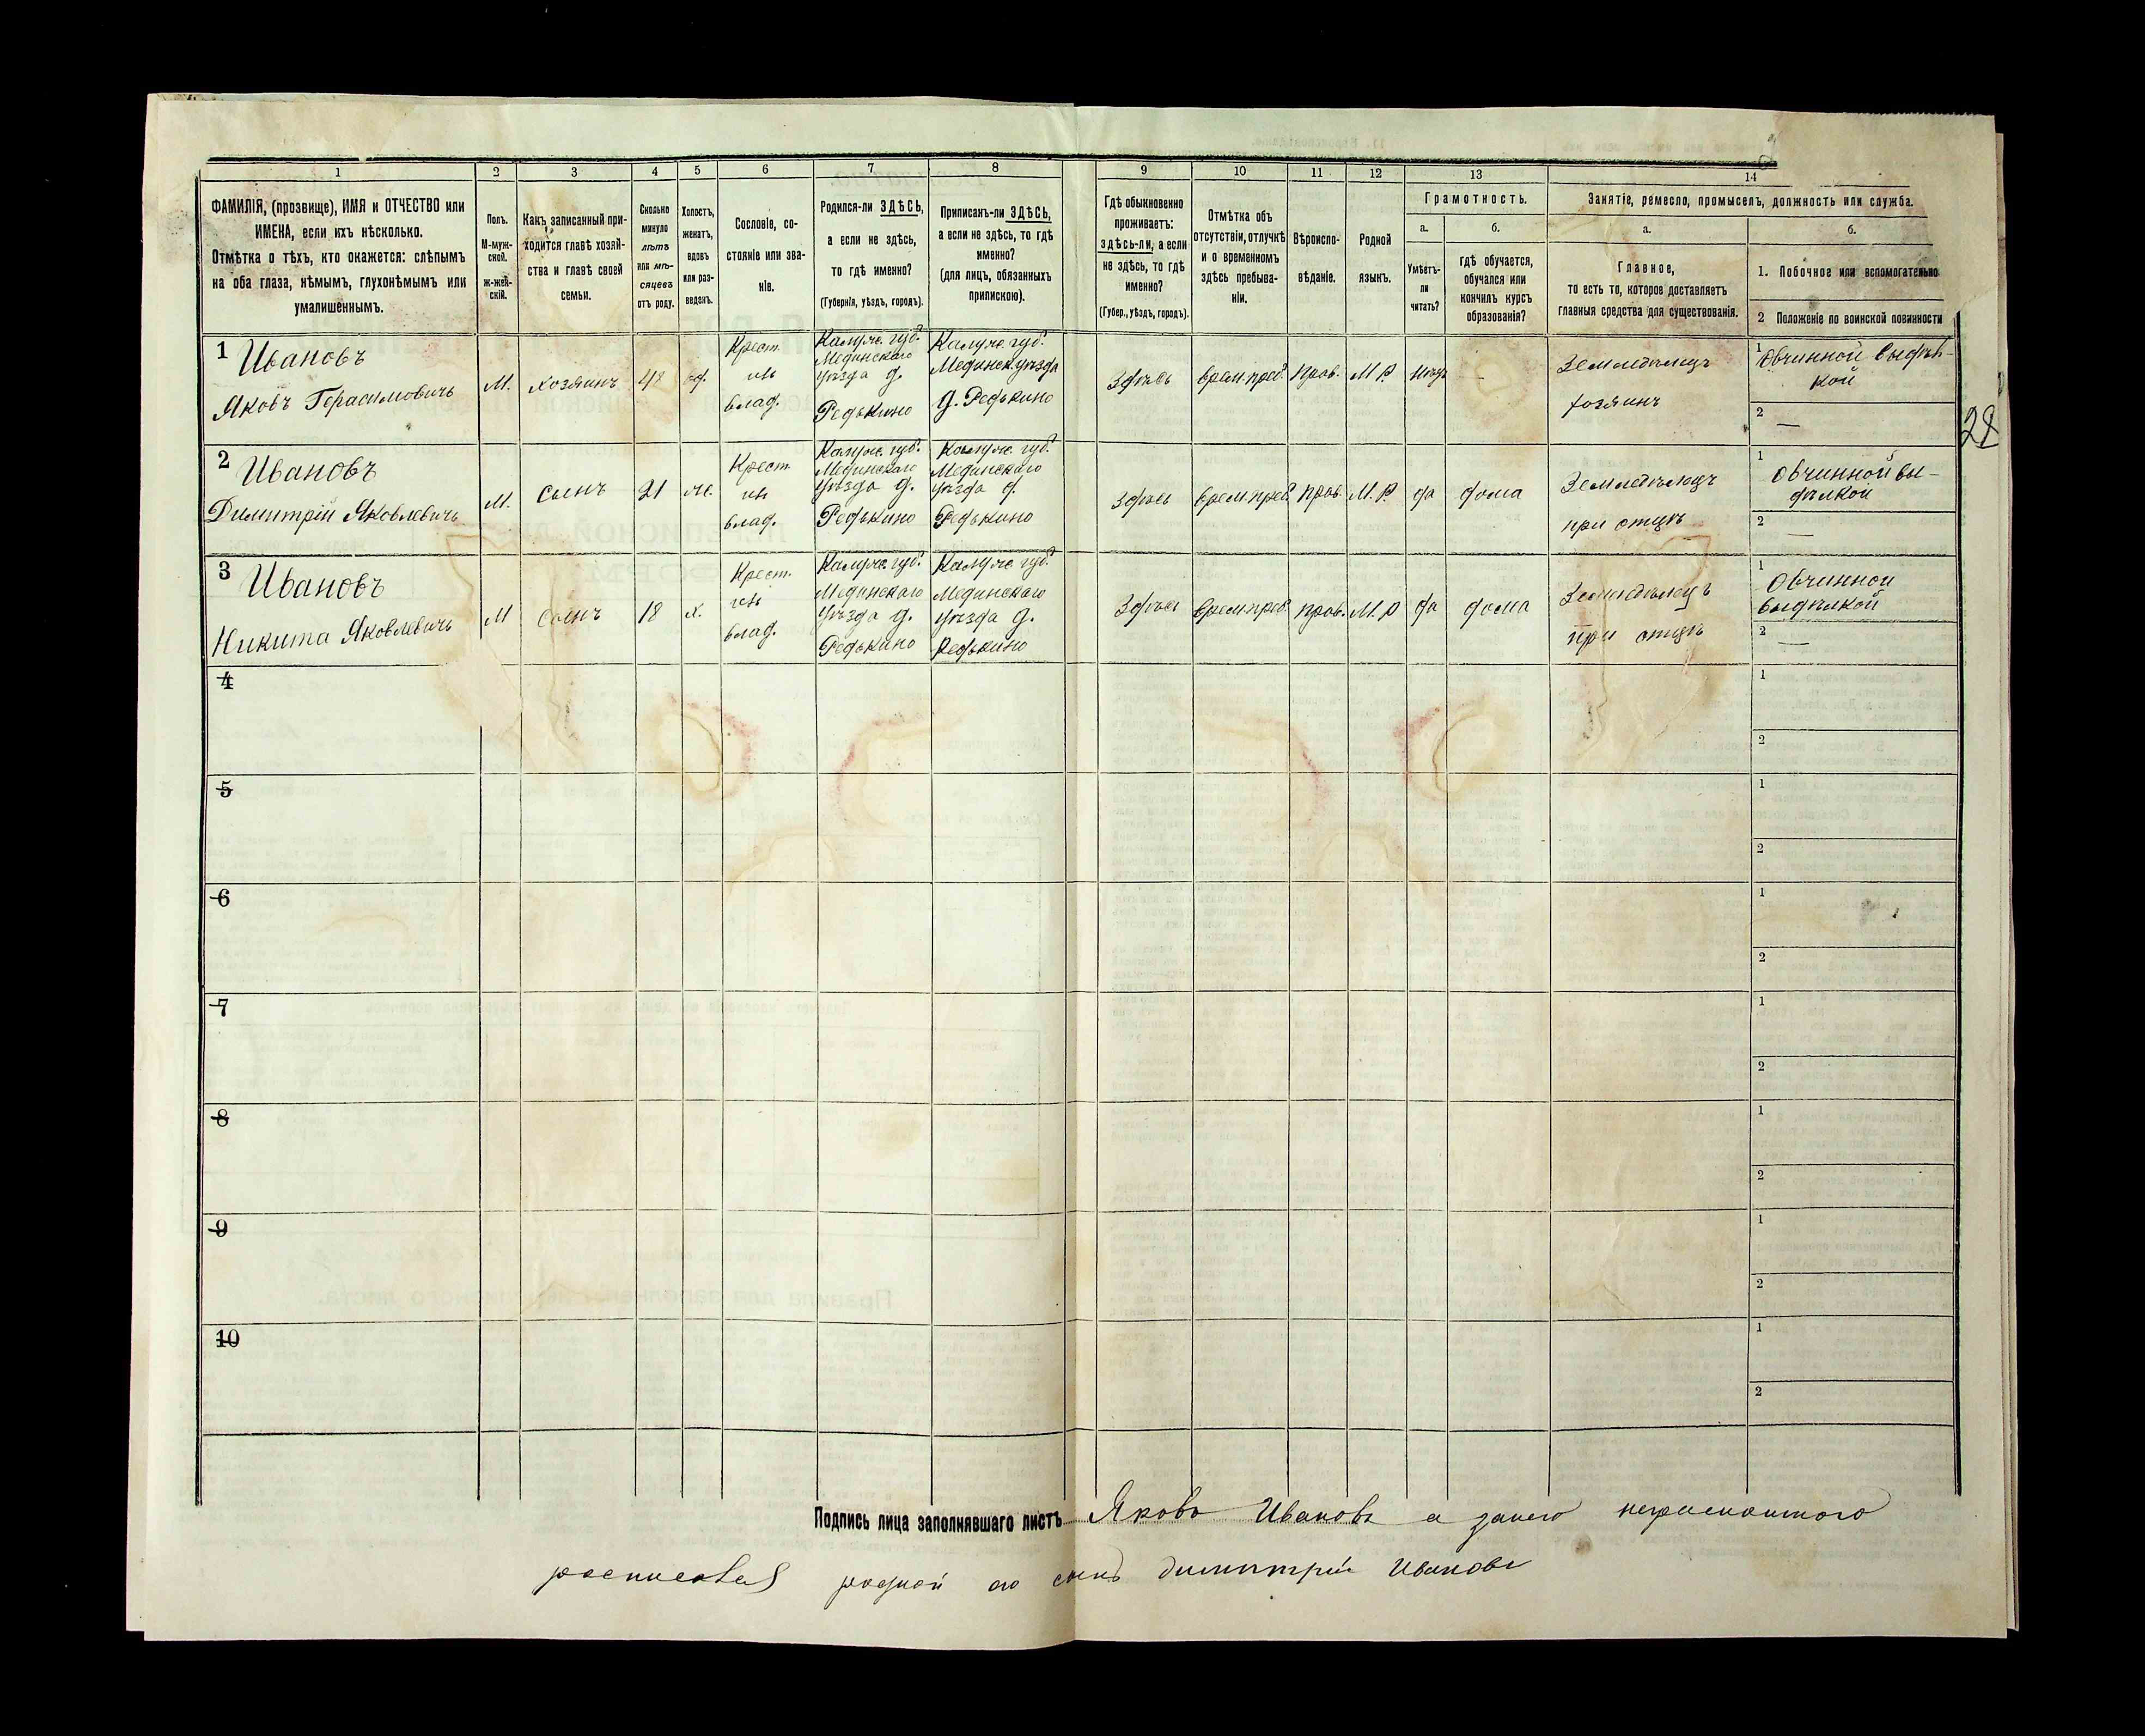 1 2 3 4 5 6 7 8 9 10 11 12 13 14
ФАМИЛІЯ, (прозвище), ИМЯ и ОТЧЕСТВО или
ИМЕНА, если ихъ нѣсколько.
Отмѣтка о тѣхъ, кто окажется: слѣпымъ
на оба глаза, нѣмымъ, глухонѣмымъ или
умалишеннымъ.
Полъ.
М-муж-
ской.
ж-жен-
скій.
Какъ записанный при-
ходится главѣ хозяй-
ства и главѣ своей
семьи.
Сколько
минуло
лѣтъ
или мѣ-
сяцевъ
отъ роду.
Холостъ,
женатъ,
вдовъ
или раз-
веденъ.
Сословіе, со-
стояніе или зва-
ніе.
Родился-ли ЗДѢСЬ,
а если не здѣсь,
то гдѣ именно?
(Губернія, уѣздъ, городъ).
Приписанъ-ли ЗДѢСЬ,
а если не здѣсь, то гдѣ
именно?
(для лицъ, обязанныхъ
припискою).
Гдѣ обыкновенно
проживаетъ:
здѣсь-ли, а если
не здѣсь, то гдѣ
именно?
(Губер., уѣздъ, городъ).
Отмѣтка объ
отсутствіи, отлучкѣ
и о временномъ
здѣсь пребыва-
ніи.
Вѣроиспо-
вѣданіе.
Родной
языкъ.
Грамотность.
а.
Умѣетъ-
ли
читать?
б.
гдѣ обучается,
обучался или
кончилъ курсъ
образованія?
Занятіе, ремесло, промыселъ, должность или служба.
а.
Главное,
то есть то, которое доставляетъ
главныя средства для существованія.
б.
1. Побочное или вспомогательно
2 Положеніе по воинской повинности
1 Ивановъ
Яковъ Герасимовичъ
М.
хозяинъ
48
вд.
Крест.
инъ
влад.
Калуж. губ.
Медынскаго
уѣзда д.
Редькино
Калуж. губ.
Медынск. уѣзда
д. Редькино
Здѣсь
врем преб.
Прав.
М Р
нѣтъ
—
Земледѣлецъ
хозяинъ
1 Овчинной выдѣл-
кой
2 —
2 Ивановъ
Димитрій Яковлевичъ
М.
сынъ
21
ж.
Крест
инъ
влад.
Калуж. губ.
Медынскаго
уѣзда д.
Редькино
Калуж. губ.
Медынскаго
уѣзда д.
Редькино
Здѣсь
врем преб.
прав.
М. Р
да
дома
Земледѣлецъ
при отцѣ
1 Овчинной вы-
дѣлкой
2 —
3 Ивановъ
Никита Яковлевичъ
М
сынъ
18
х.
Крест.
инъ
влад.
Калуж. губ.
Медынскаго
уѣзда д.
Редькино
Калуж. губ.
Медынскаго
уѣзда д.
Редькино
Здѣсь
врем преб.
прав.
М. Р
да
дома
Земледѣлецъ
при отцѣ
1 Овчинной
выдѣлкой
2 —
4
1
2
5
1
2
6
1
2
7
1
2
8
1
2
9
1
2
10
1
2
Подпись лица заполнявшаго листъ Яковъ Ивановъ а занего неграмотного
росписался родной его сынъ димитрій Ивановъ